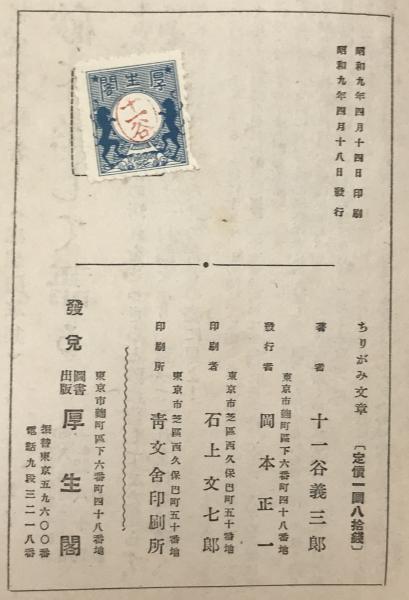 昭和九年四月十四日印刷
昭和九年四月十八日發行
厚生閣
十一谷
ちりがみ文章
〔定價一圓八拾錢〕
著者 十一谷義三郎
東京市麴町區下六番町四十八番地
發行者 岡本正一
東京市芝區西久保巴町五十番地
印刷者 石上文七郎
東京市芝區西久保巴町五十番地
印刷所 靑文舍印刷所
東京市麴町區下六番町四十八番地
發兌 圖書出版 厚生閣
振替東京五九六〇〇番
電話九段三二一八番